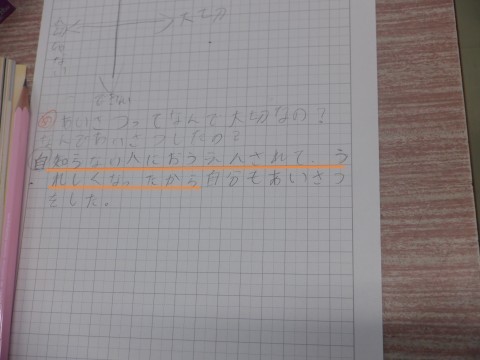 大切
できない
あいさつってなんで大切なの？
なんであいさつしたの？
自 知らない人におうえんされて、う
れしくなったから自分もあいさつ
をした。